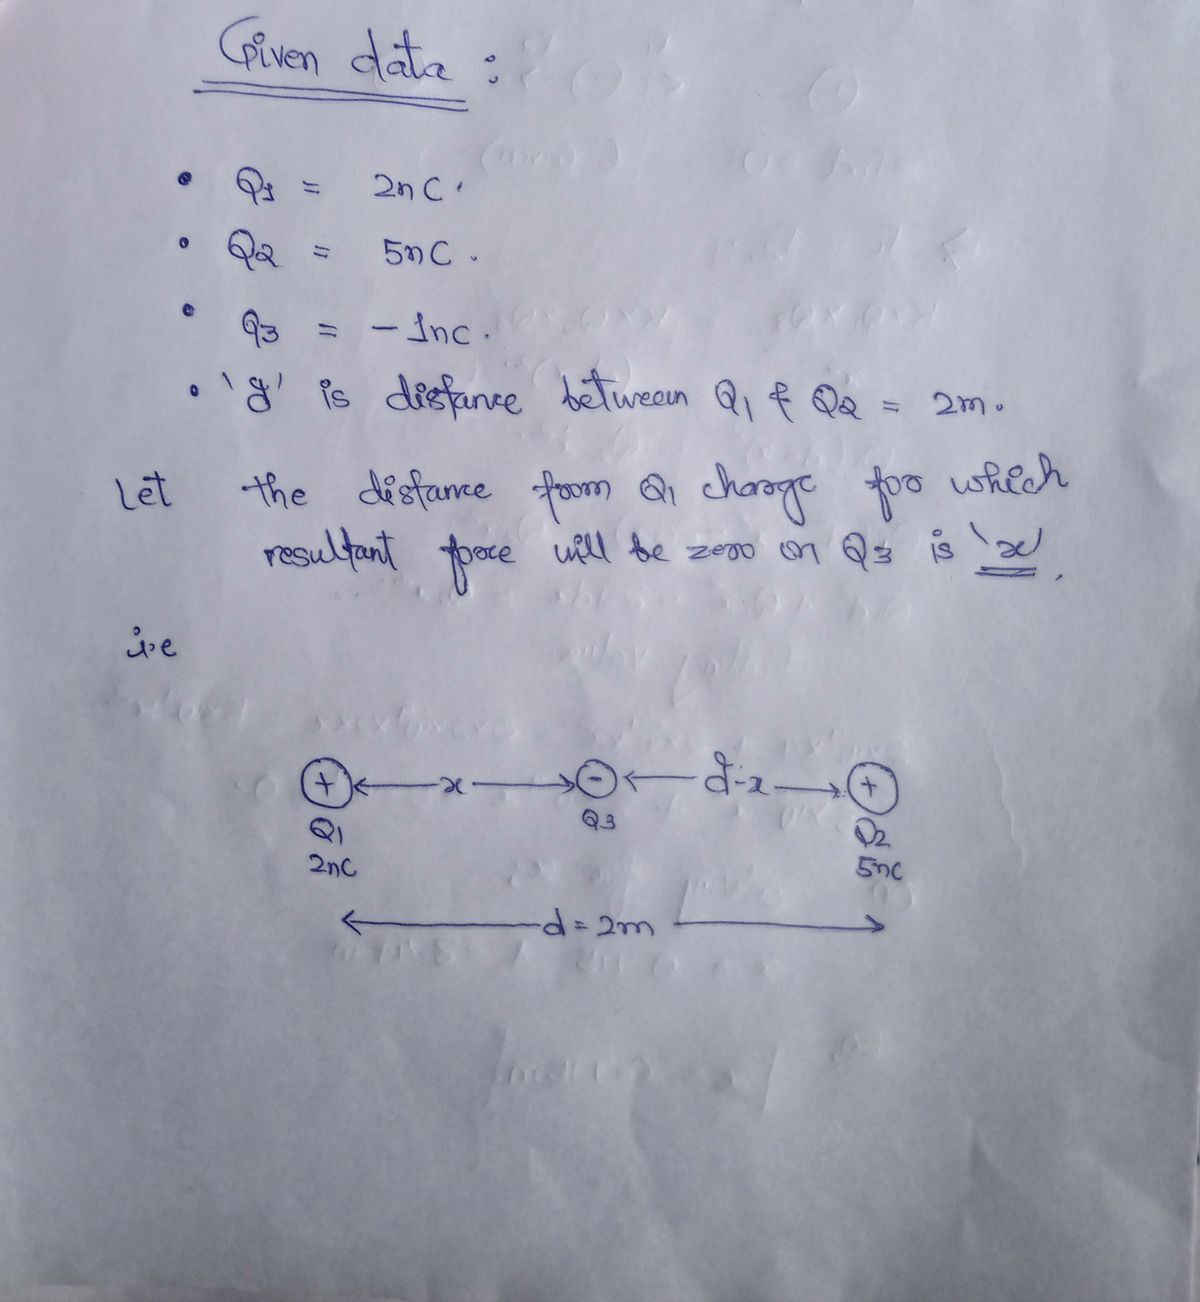 Given data :
• Q1 = 2nC.
• Q2 = 5nC.
• Q3 = - 1nc.
• 'd' is distance between Q1 & Q2 = 2m.
Let the distance from Q1 charge for which
resultant force will be zero on Q3 is 'x'.
i.e
+ x - d-x +
Q1 Q3 Q2
2nC 5nC
d = 2m